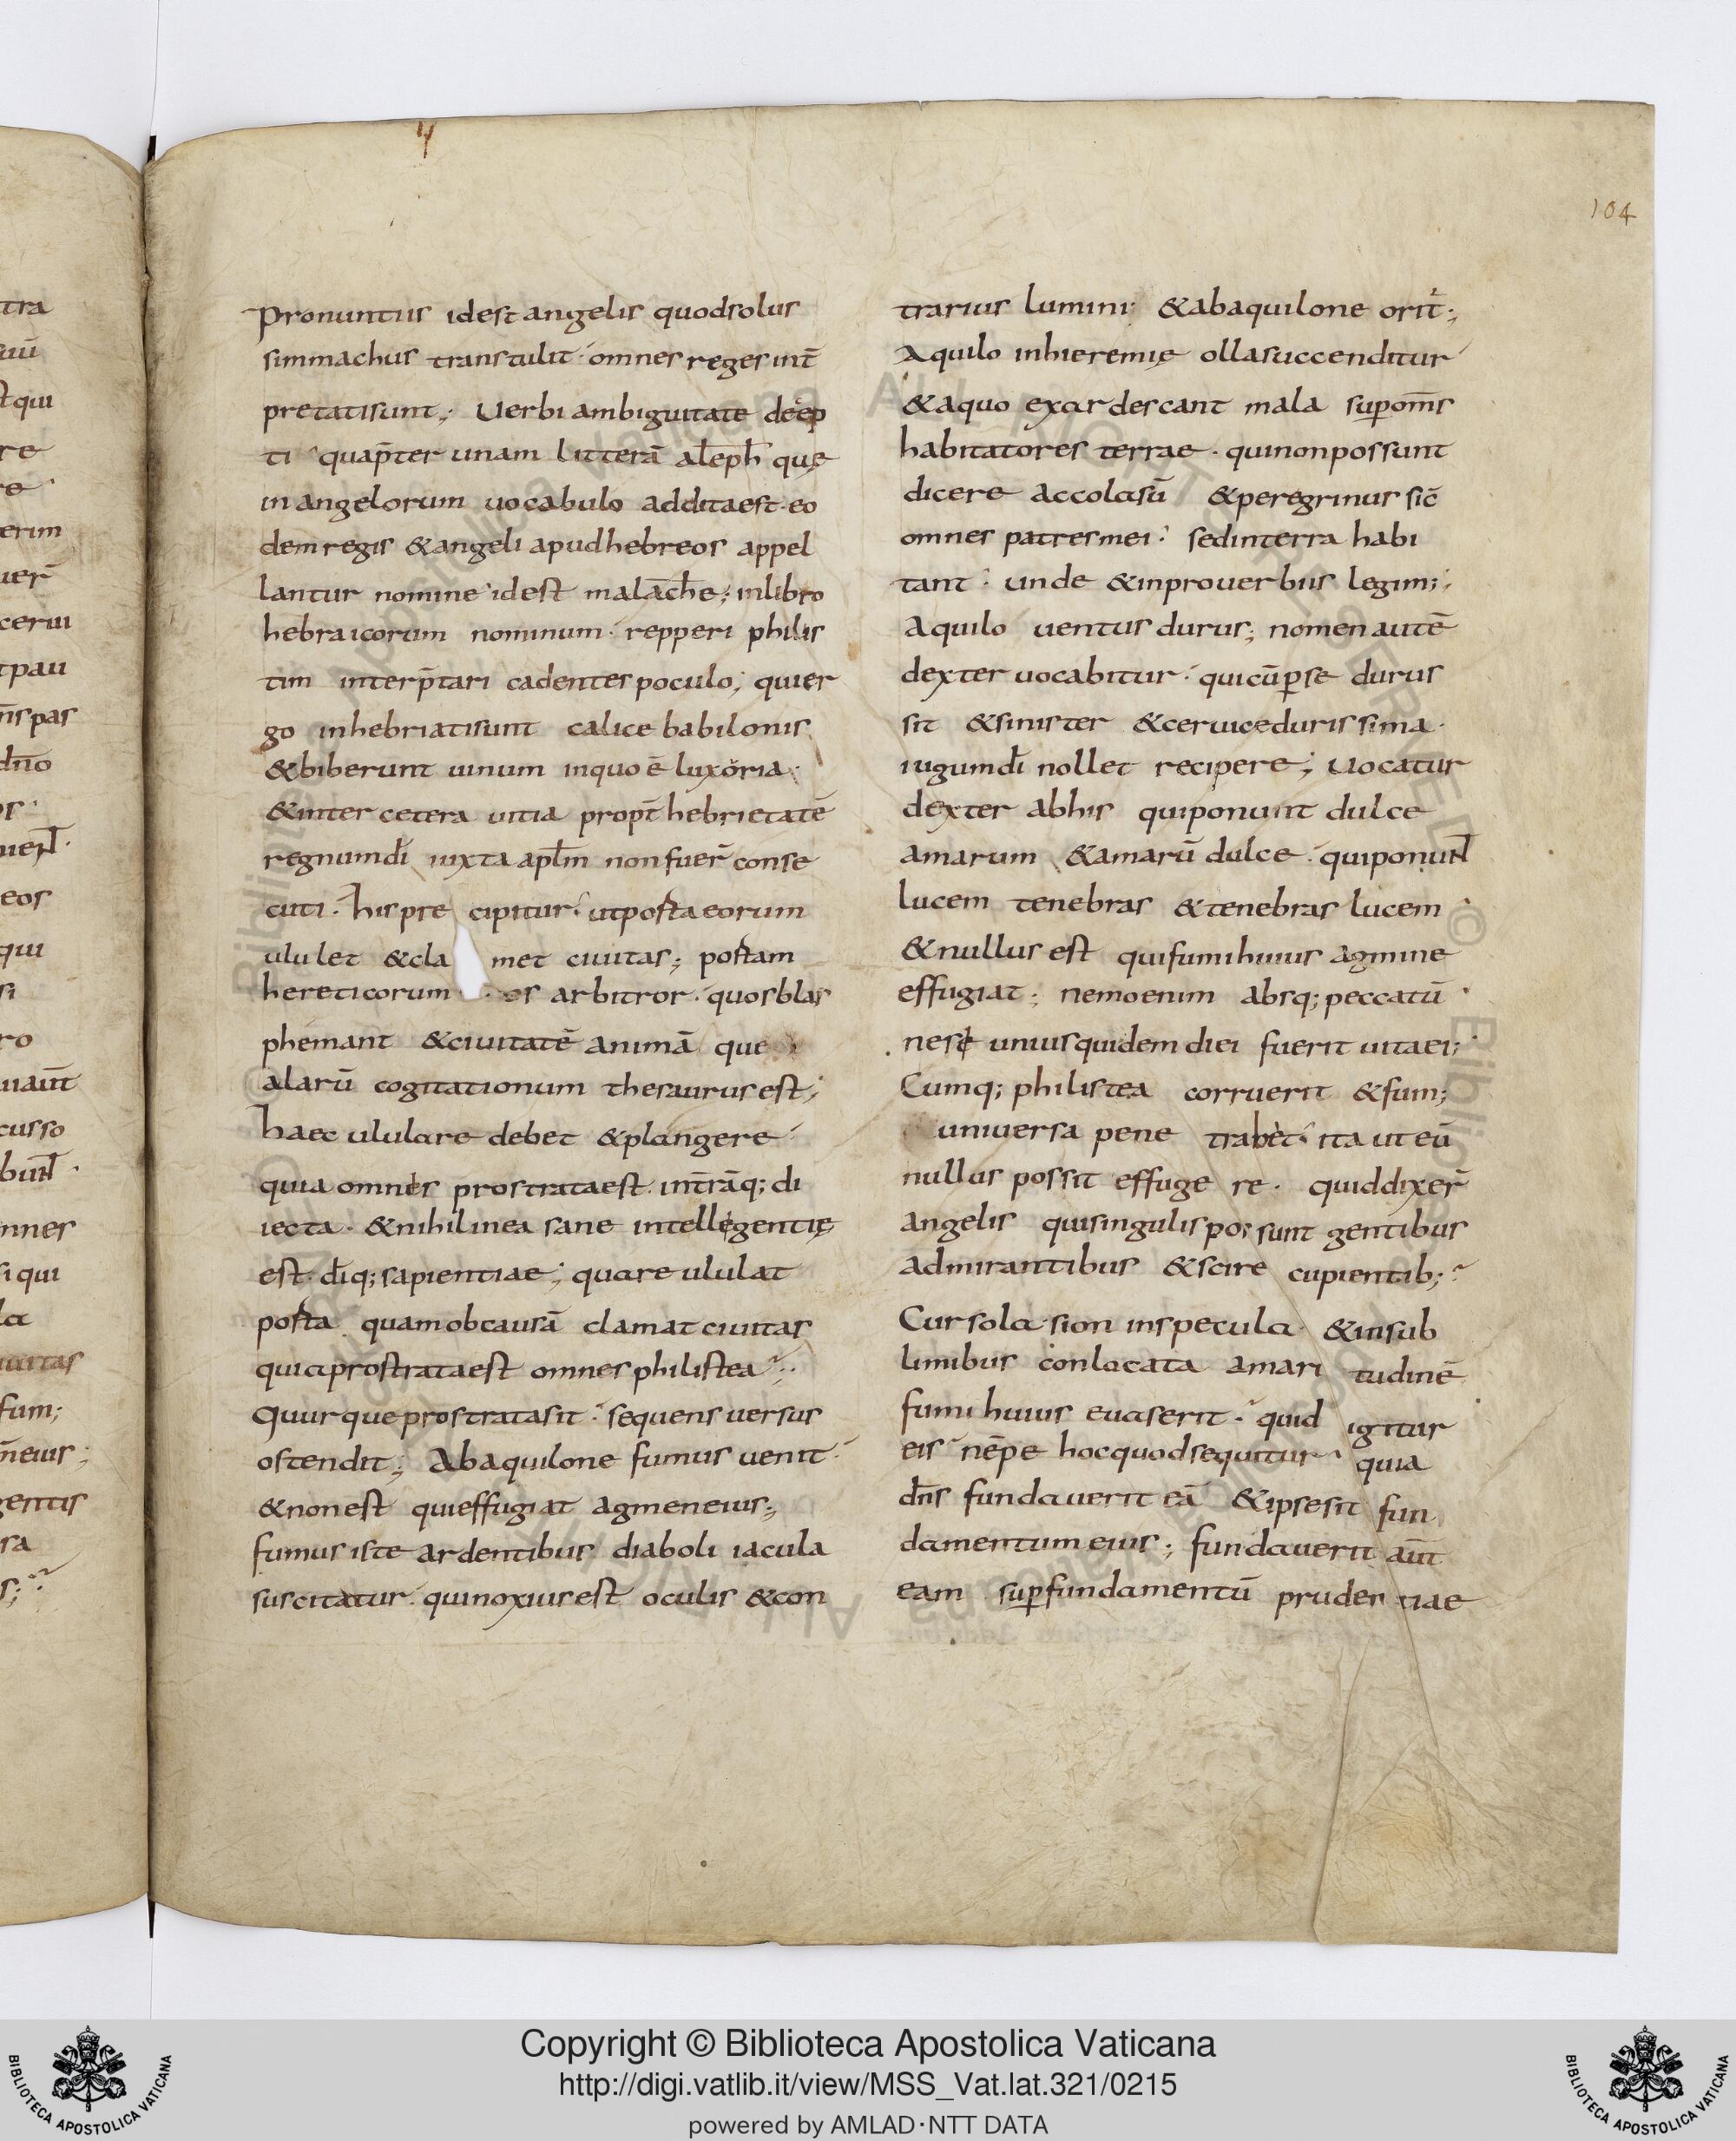 104
Pronuntiis idest angelis quodsolus
simmachus transtulit· omnes reges int̄
pretatisunt; Uerbi ambiguitate decep
ti quap̄ter unam litterā aleph que̜
in angelorum uocabulo additaest· eo
dem regis &angeli apudhebreos appel
lantur nomine idest malache; inlibro
hebraicorum nominum· repperi philis
tim interp̄tari cadentes poculo; quier
go inhebriatisunt calice babilonis
&biberunt uinum inquo ē luxoria;
&inter cetera uitia propt̄ hebrietatē
regnum dī iuxta apl̄m non fuer̄ conse
cuti· hispre cipitur· utposta eorum
ululet &cla met ciuitas; postam
hereticorum os arbitror· quosblas
phemant &ciuitatē animā que
alarū cogitationum thesaurus est;
haec ululare debet &plangere
quia omnes prostrataest· intrāq; di
iecta· &nihil inea sane intellegentie̜
est· dīq; sapientiae; quare ululat
posta quam obcausā clamat ciuitas
quiaprostrataest omnes philistea
Quur que prostratasit· sequens uersus
ostendit; Abaquilone fumus uenit·
&nonest quieffugiat agmeneius;
fumus iste ardentibus diaboli iacula
suscitatur· quinoxius est oculis &con
trarius lumini; &abaquilone orit̄;
Aquilo inhieremie̜ ollasuccenditur
&aquo exardescant mala sup̱om̄s
habitatores terrae· quinonpossunt
dicere accolasū &peregrinus sic̄
omnes patres mei· sedinterra habi
tant· unde &inprouerbiis legim;
Aquilo uentus durus; nomen autē
dexter uocabitur· quicūp̱se durus
sit &sinister &ceruicedurissima·
iugum dī nollet recipere; Uocatur
dexter abhis quiponunt dulce
amarum &amarū dulce· quiponunt
lucem tenebras &tenebras lucem
&nullus est quifumihuius agmine
effugiat; nemoenim absq; peccatū
nesc unius quidem diei fuerit uitaei;
Cumq; philistea corruerit &fum;
uniuersa pene trabet· ita ut eū
nullus possit effuge re· quiddixer̄
angelis quisingulis pos sunt gentibus
admirantibus &scire cupientib;
Cur sola sion inspecula &insub
limibus conlocata amari tudinē
fumi huius euaserit· quid igitur
eis nēpe hocquodsequitur quia
dn̄s fundauerit eā &ipsesit fun
damentum eius; fundauerit aūt
eam sup̱fundamentū pruden tiae
Copyright © Biblioteca Apostolica Vaticana
http://digi.vatlib.it/view/MSS_Vat.lat.321/0215
powered by AMLAD·NTT DATA
BIBLIOTECA APOSTOLICA VATICANA
BIBLIOTECA APOSTOLICA VATICANA